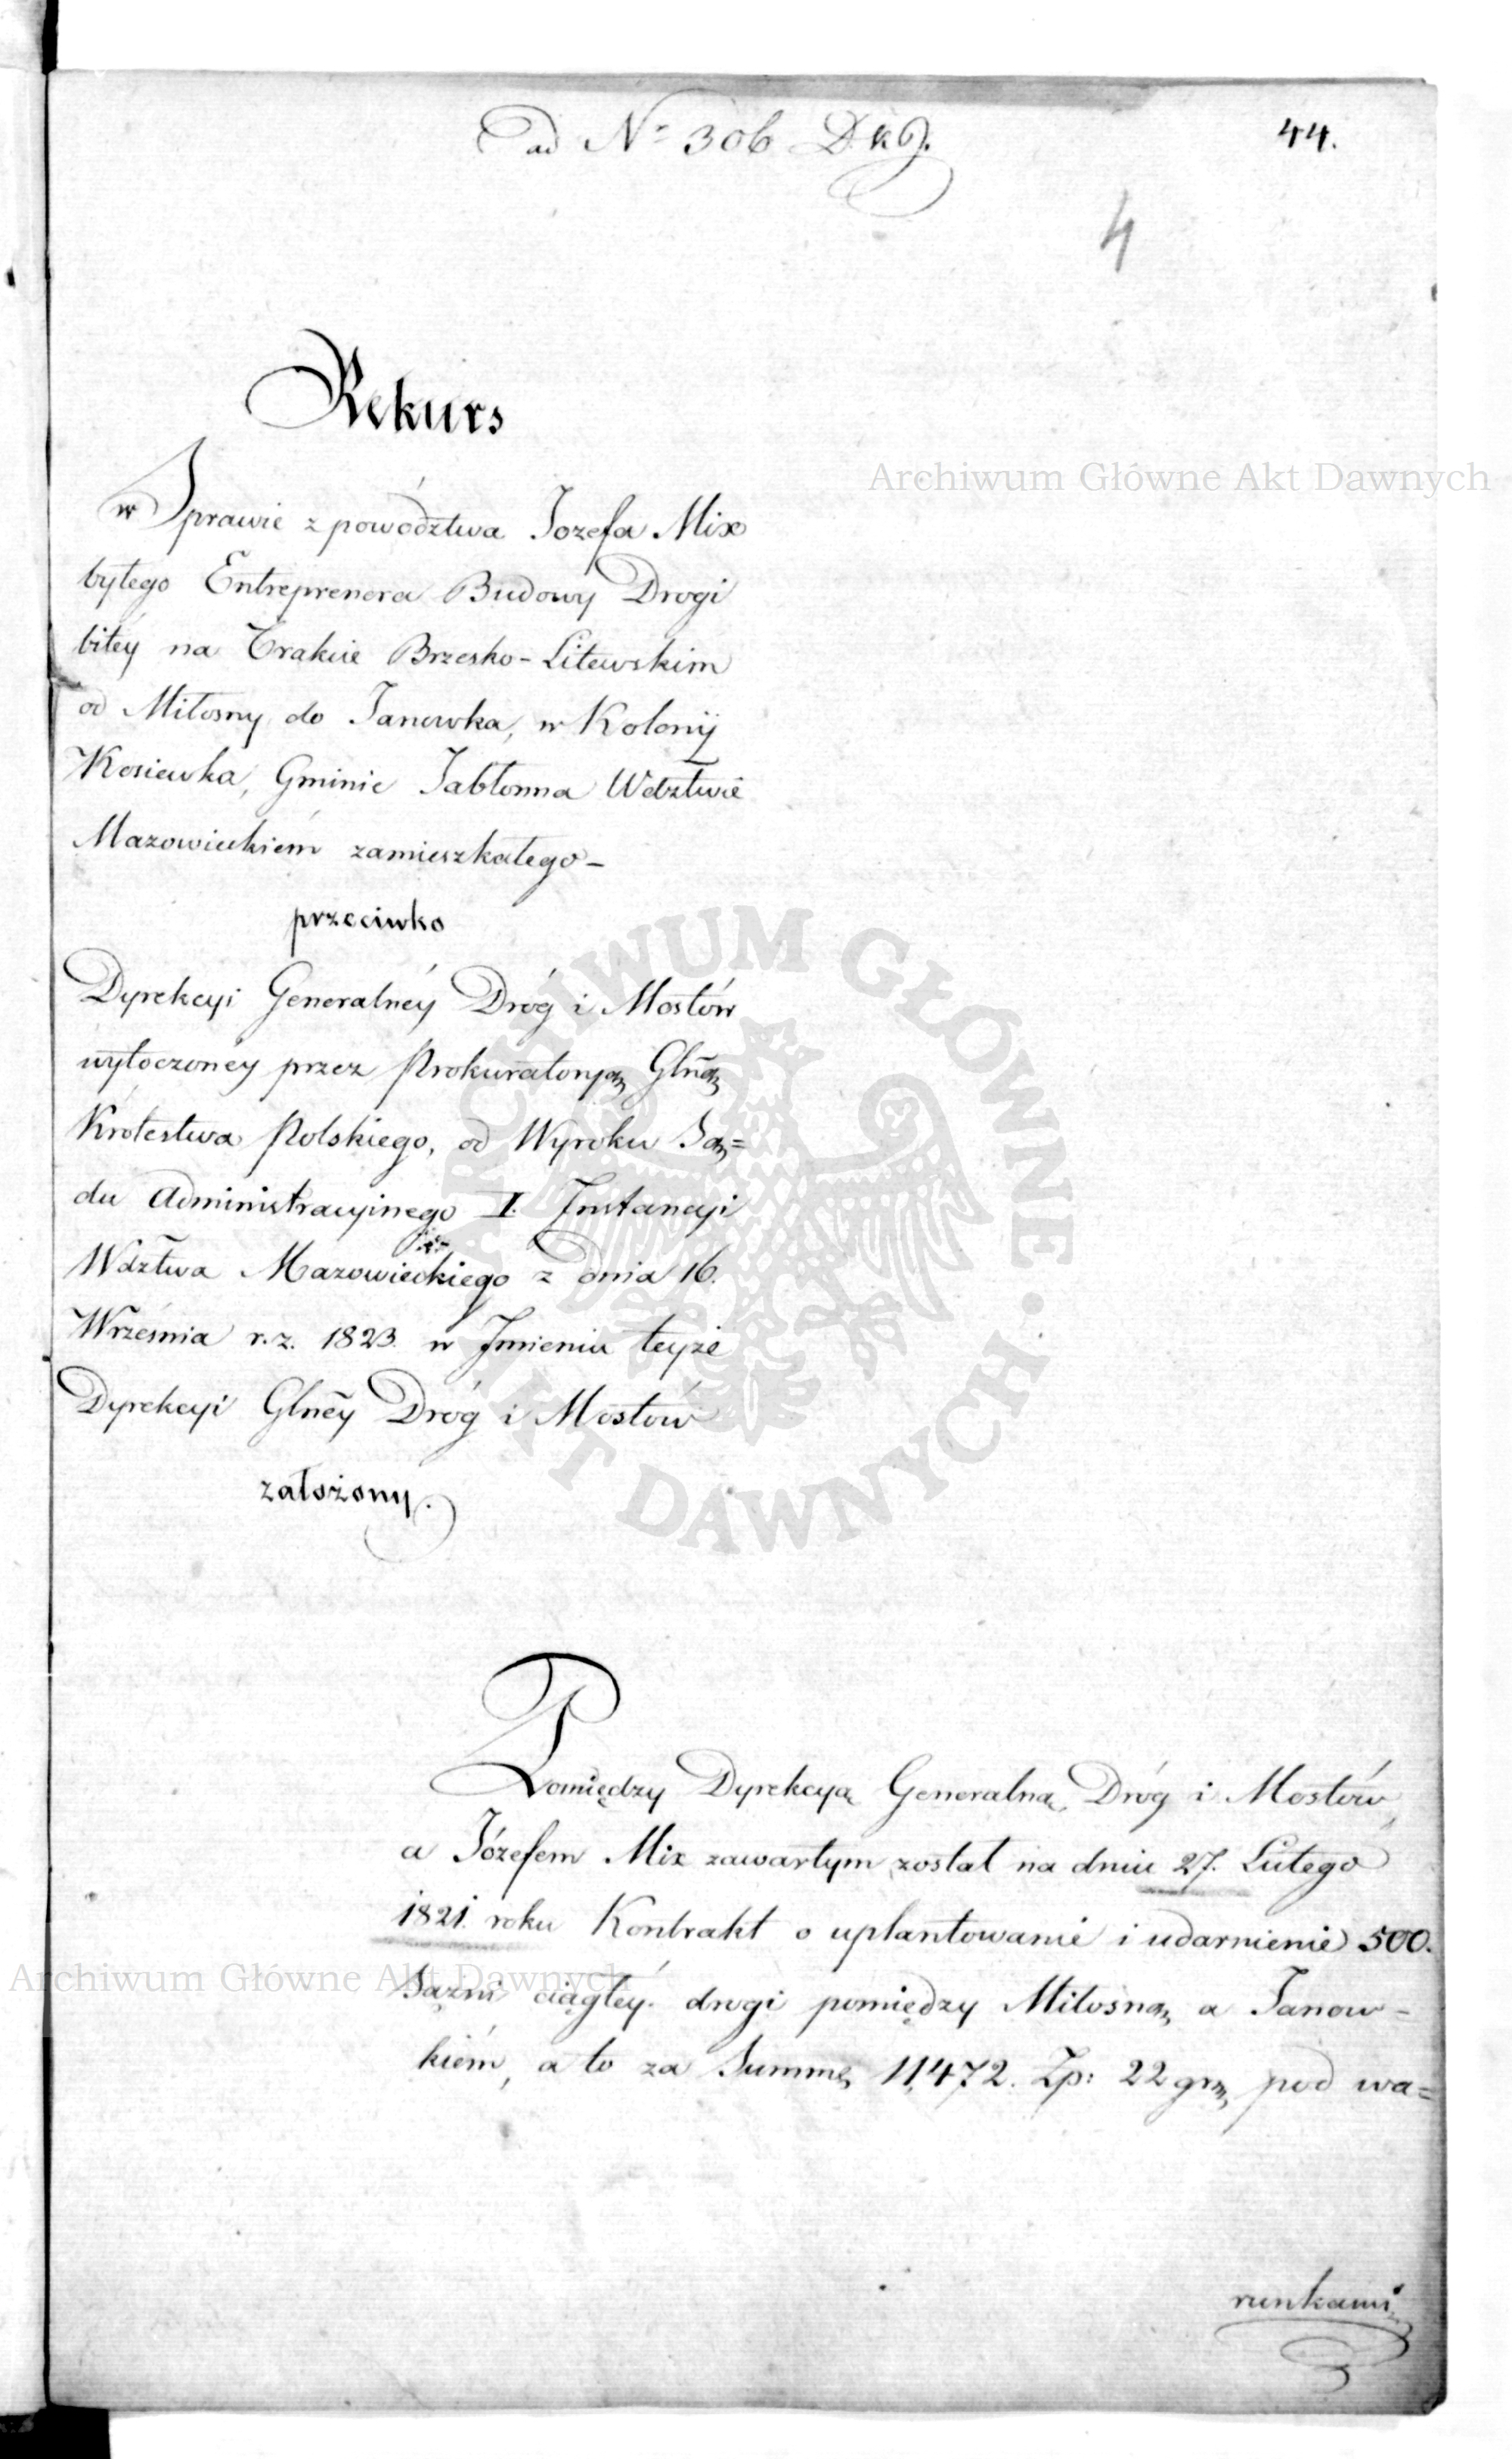 ad Nº 306 D.K.J.
44.
4
Rekurs
w Sprawie z powództwa Jozefa Mix
byłego Entreprenera Budowy Drogi
bitéy na Trakcie Brzesko-Litewskim
od Miłosny do Janowka, w Kolonij
Kosiewka, Gminie Jabłonna Wdztwie
Mazowieckiém zamieszkałego –
przeciwko
Dyrekcyi Generalnéy Dróg i Mostów
wytoczoney przez Prokuratoryą Glną
Królestwa Polskiego, od Wyroku Są=
du Administracyinego I. Instancyi
Wdztwa Mazowieckiego z dnia 16.
Września r. z. 1823. w Imieniu teyże
Dyrekcyi Glnéy Dróg i Mostów
założony.
Pomiędzy Dyrekcyą Generalną Dróg i Mostów,
a Józefem Mix zawartym został na dniu 27. Lutego
1821. roku Kontrakt o uplantowanie i udarnienie 500.
Sążni ciągłéy drogi pomiędzy Miłosną a Janow-
kiém, a to za Summę 11,472. Zp: 22 gr, pod wa=
runkami
Archiwum Główne Akt Dawnych
ARCHIWUM GŁÓWNE AKT DAWNYCH
Archiwum Główne Akt Dawnych